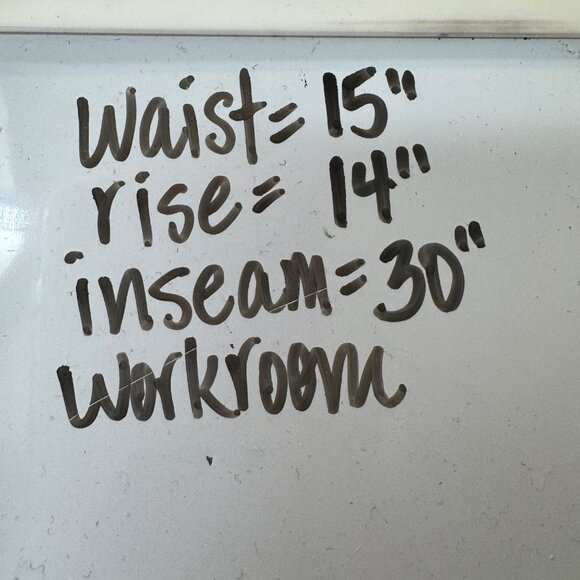 Waist= 15"
rise= 14"
inseam=30"
Workroom